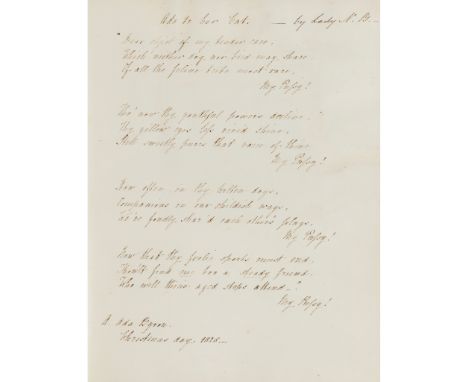 Ada to her Cat. — by Lady N. B. —
"Dear object of my tender care,
Which neither dog nor bird may share
Of all the feline tribe most rare,
My Pussy!
Tho' now thy youthful powers decline,
Thy yellow eyes less vivid shine,
Still sweetly purrs that voice of thine,
My Pussy!
How often in thy better days,
Companions in our childish ways,
We've fondly shar'd each other's plays,
My Pussy!
Now that thy frolic sports must end,
Thou'lt find me here a steady friend,
Who will thine aged steps attend —"
My Pussy!
A. Ada Byron.
Christmas day,